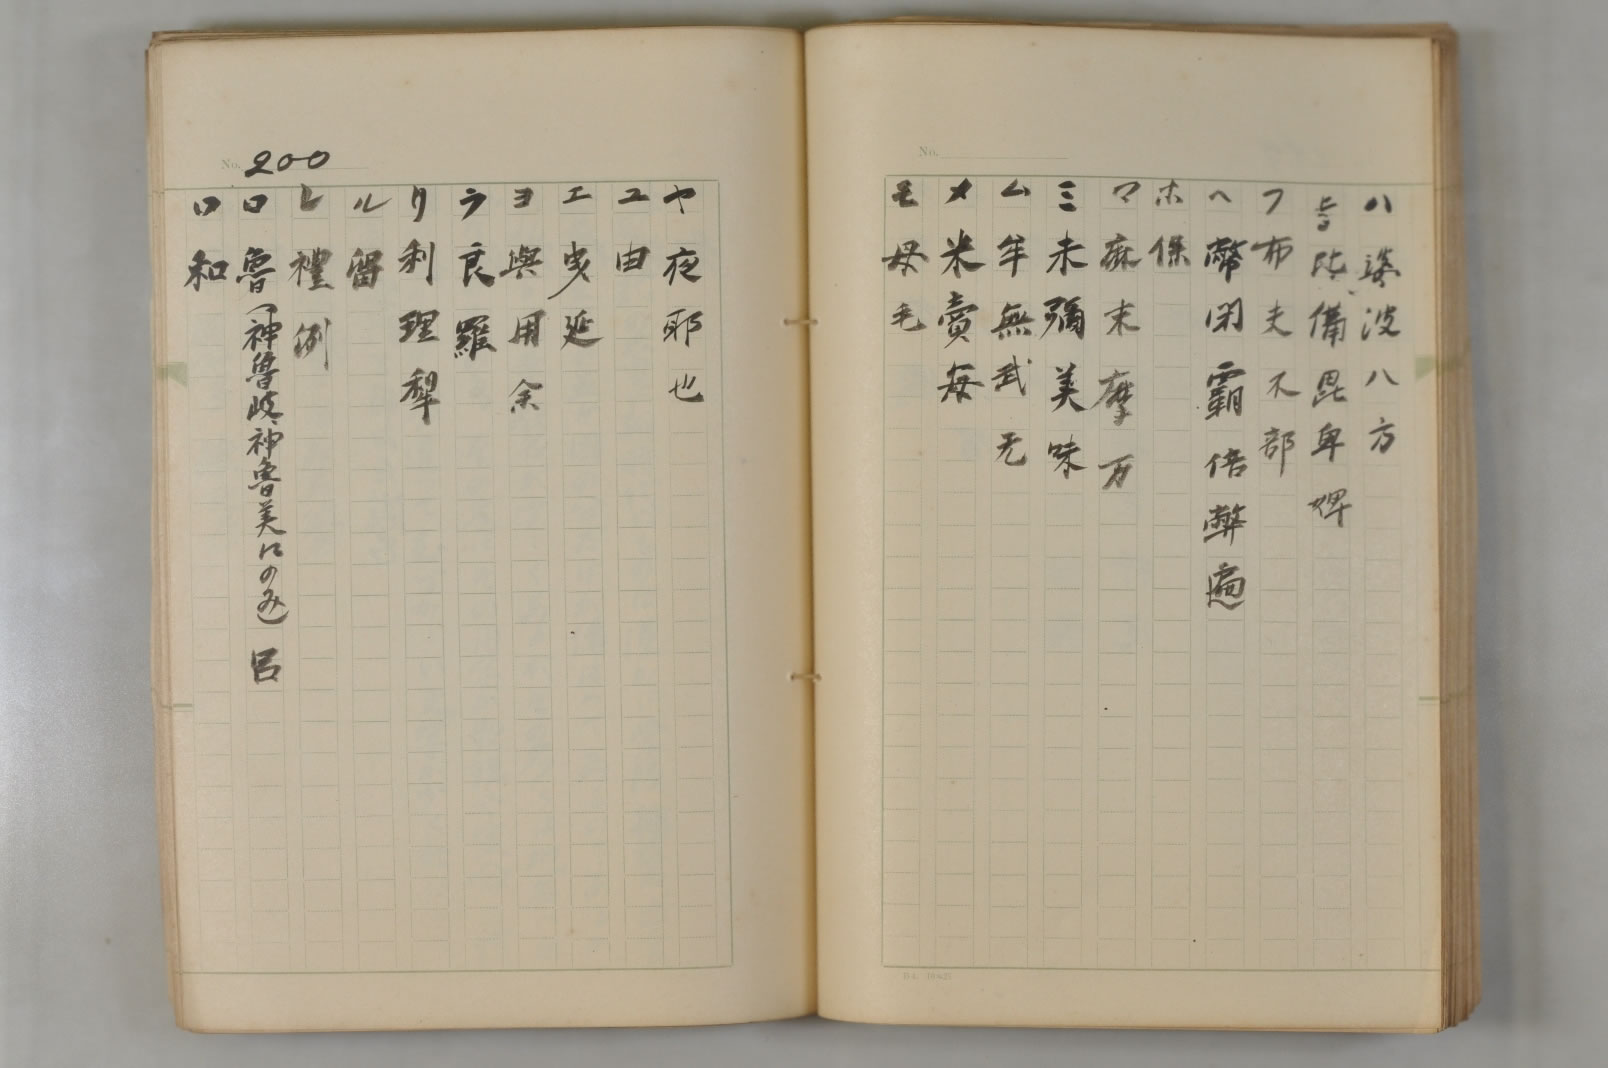 No.
ハ 婆 波 八 方
備 毘 卑 婢
フ 布 夫 不 部
ヘ 幣 閉 覇 倍 弊 遍
ホ 保
マ 麻 末 摩 万
ミ 未 彌 美 味
ム 牟 無 武 无
メ 米 賣 毎
モ 母 毛
No. 200
ヤ 夜 耶 也
ユ 由
エ 曳 延
ヨ 與 用 余
ラ 良 羅
リ 利 理 犂
ル 留
レ 禮 例
ロ 魯(神魯岐神魯美にのみ) 呂
ワ 和